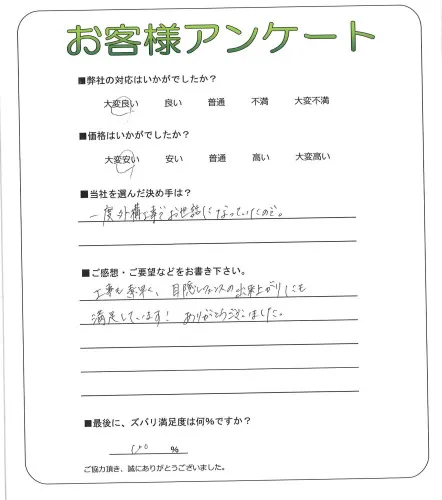 お客様アンケート
■弊社の対応はいかがでしたか?
大変良い 良い 普通 不満 大変不満
■価格はいかがでしたか?
大変安い 安い 普通 高い 大変高い
■当社を選んだ決め手は?
一度外構工事でお世話になっていたので。
■ご感想・ご要望などをお書き下さい。
工事も素早く、目隠しフェンスの出来上がりにも
満足しています! ありがとうございました。
■最後に、ズバリ満足度は何%ですか?
100 %
ご協力頂き、誠にありがとうございました。